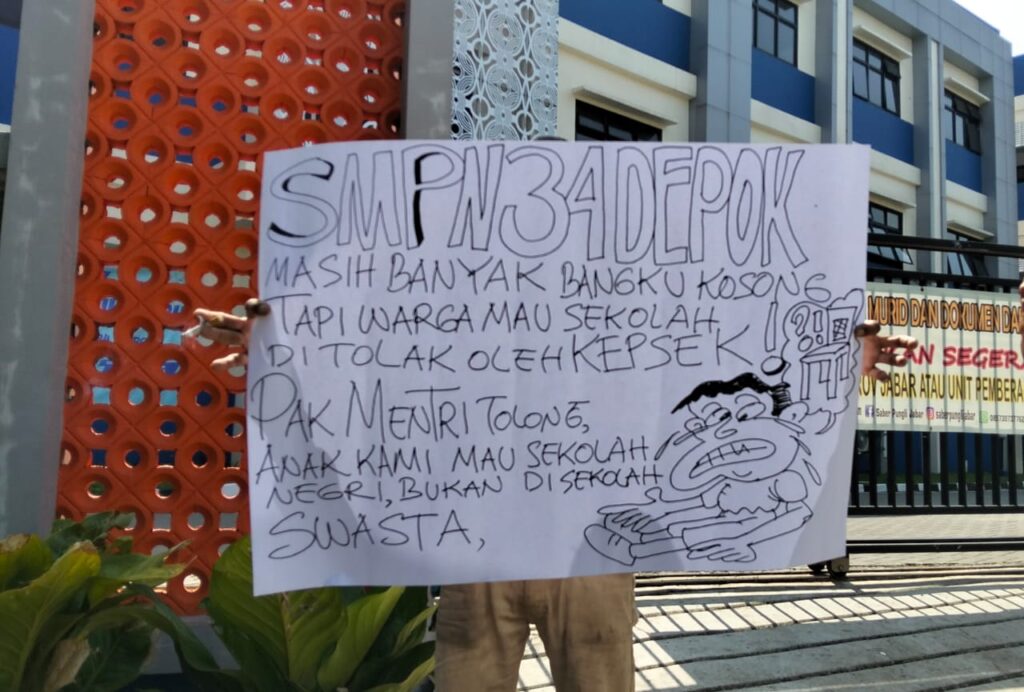 SMPN 34 DEPOK
MASIH BANYAK BANGKU KOSONG
TAPI WARGA MAU SEKOLAH
DI TOLAK OLEH KEPSEK!
?!
PAK MENTRI TOLONG,
ANAK KAMI MAU SEKOLAH
NEGRI, BUKAN DISEKOLAH
SWASTA,
MURID DAN DOKUMEN DA
KAN SEGERA
JABAR ATAU UNIT PEMBERA
Saber Pungli Jabar saberpunglijabar